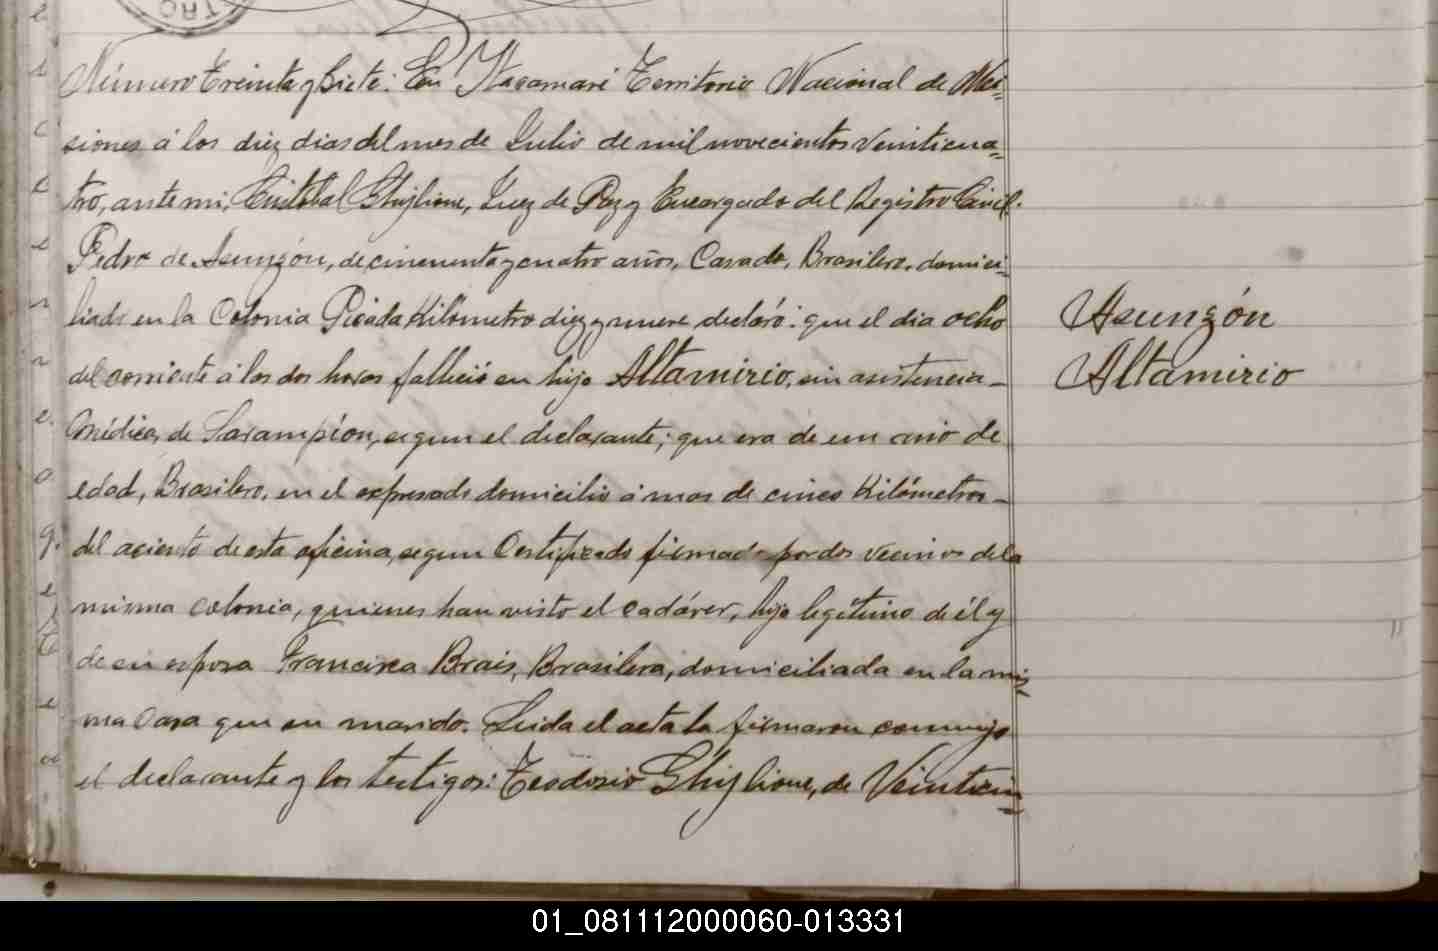 Número treinta y Siete: En Itacaruaré Territorio Nacional de Mi-
siones á los diez dias del mes de Julio de mil novecientos veinticua-
tro, ante mi, Cristobal Ghiglione, Juez de Paz y Encargado del Registro Civil.
Pedro de Asunzón, de cincuenta y cuatro años, Casado, Brasilero, domici-
liado en la Colonia Picada Kilómetro diez y nueve declaró: que el dia ocho
del corriente á los dos horas falleció su hijo Altamirio, sin asistencia-
médica, de Sarampión, segun el declarante; que era de un año de
edad, Brasilero, en el expresado domicilio á mas de cinco Kilómetros-
del aciento de esta oficina, segun Certificado firmado por dos vecinos de la
misma colonia, quienes han visto el cadáver, hijo legitimo de él y
de su esposa Francisca Brais, Brasilera, domiciliada en la mis-
ma Casa que su marido. Leida el acta la firmaron conmigo
el declarante y los testigos: Teodosio Ghiglione, de Veinticin-
Asunzón
Altamirio
01_081112000060-013331